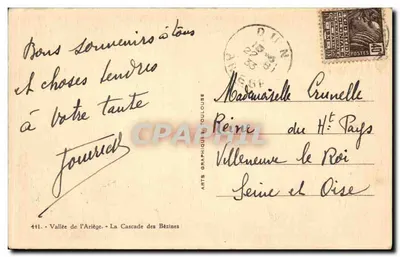 Bons souvenirs à tous
et choses tendres
à votre tante
DUN
ARIEGE
POSTES
Mademoiselle Crunelle
Reine du Ht Pays
Villeneuve le Roi
Seine et Oise
ARTS GRAPHIQUES TOULOUSE
Cparama.com
441. - Vallée de l'Ariège. - La Cascade des Bézines